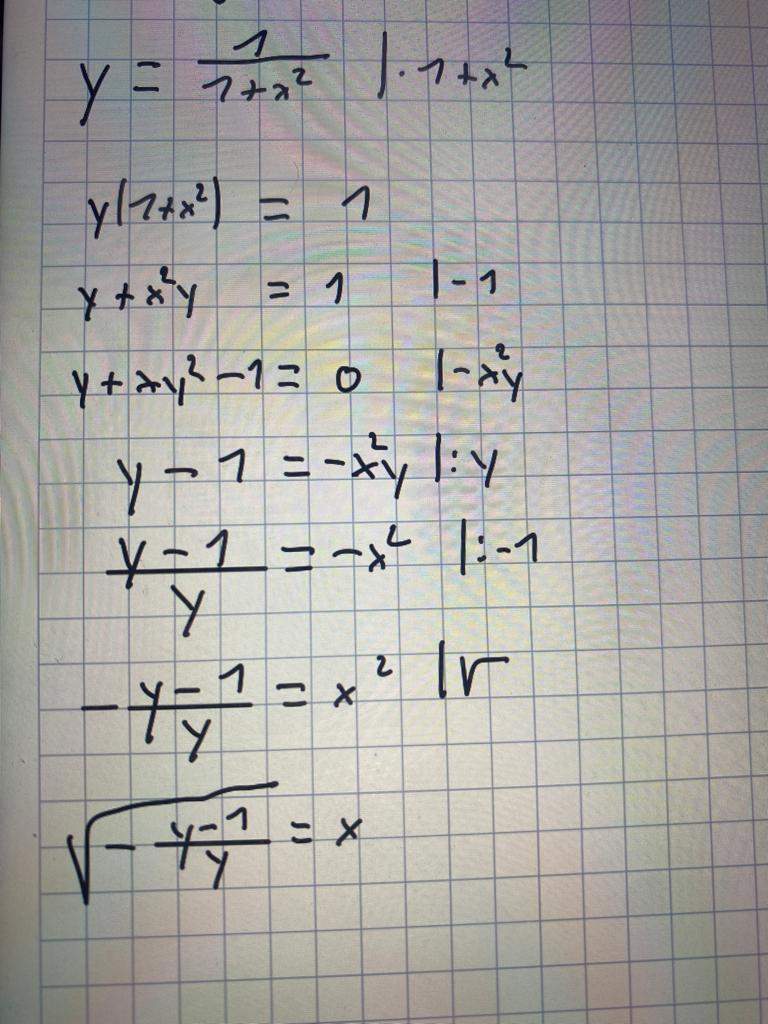 y = 1/(1+x²) | · 1+x²
y(1+x²) = 1
y + x²y = 1 | -1
y + xy² - 1 = 0 | -x²y
y - 1 = -x²y | : y
(y - 1)/y = -x² | : -1
- (y - 1)/y = x² | √
√(- (y-1)/y) = x